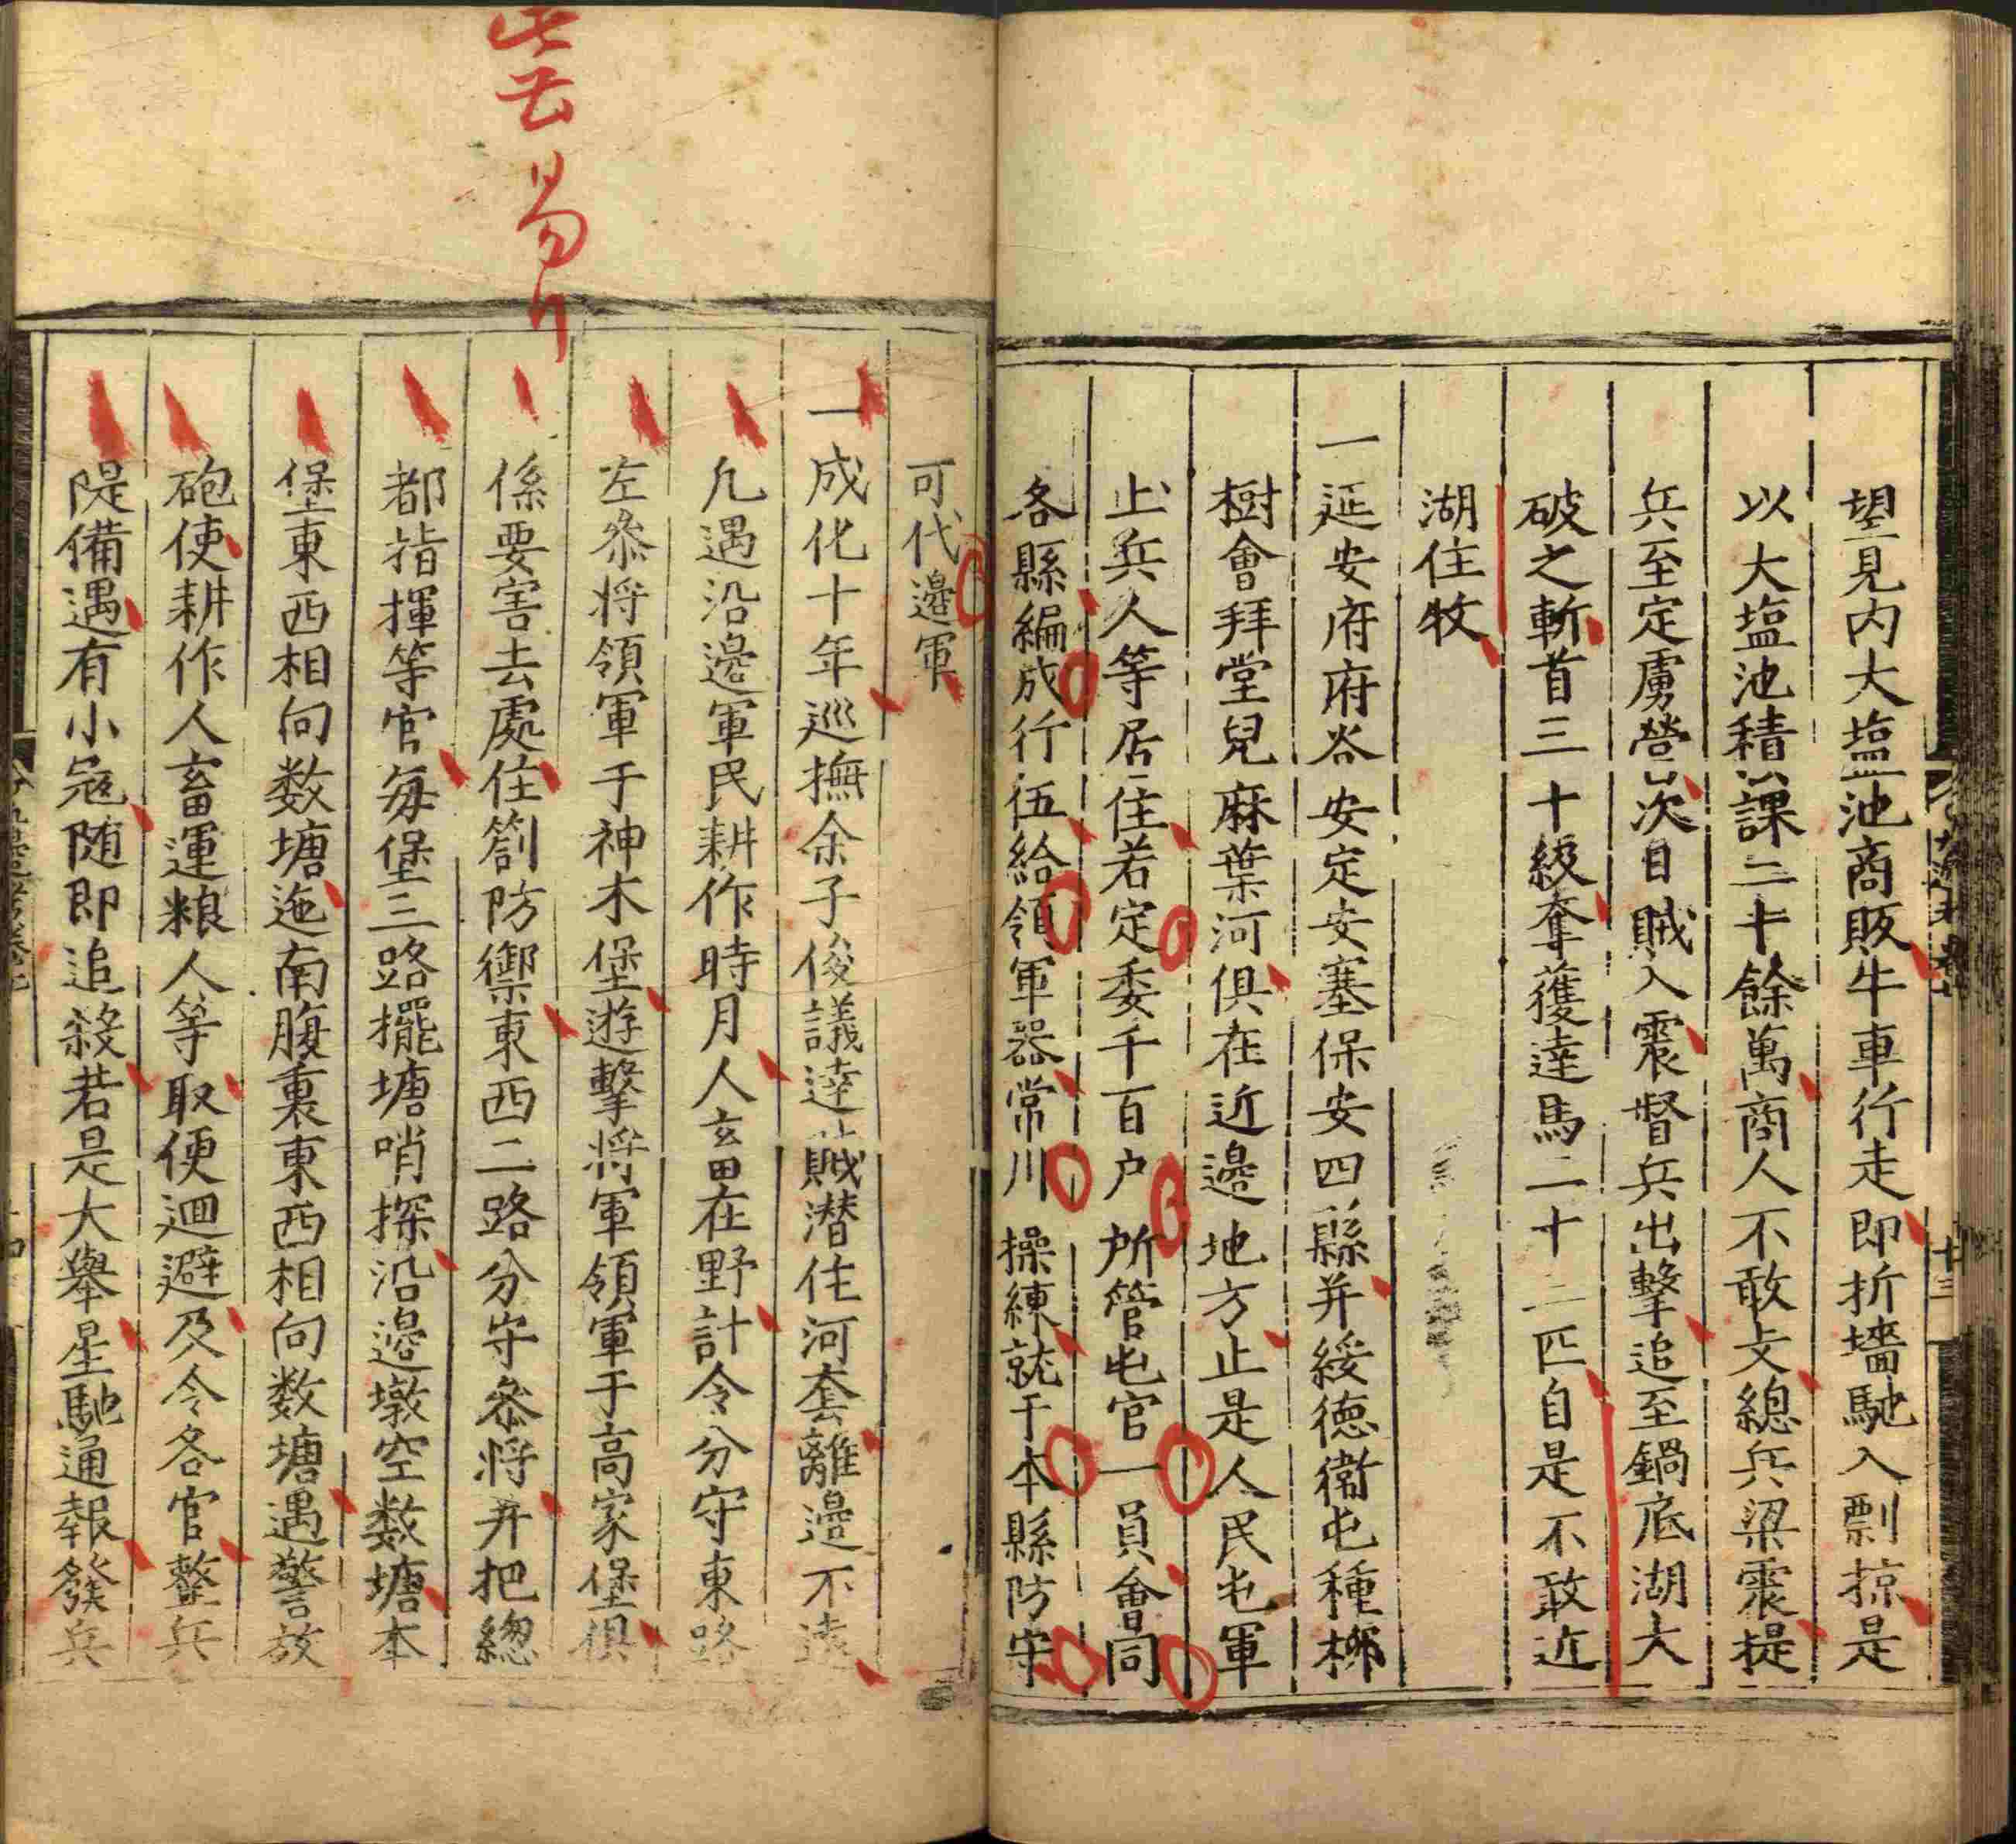 望見内大塩池商販牛車行走即折墻馳入剽掠是
以大塩池積課二十餘萬商人不敢支總兵梁震提
兵至定虜營次日賊入震督兵出擊追至鍋底湖大
破之斬首三十級奪獲達馬二十二匹自是不敢近
湖住牧
一延安府府谷安定安塞保安四縣并綏德衛屯種梛
樹會拜堂兒麻葉河俱在近邊地方止是人民屯軍
止兵人等居住若定委千百户所管屯官一員會同
各縣編成行伍給領軍器常川操練就于本縣防守
可代邊軍
一成化十年巡撫余子俊議逹賊潜住河套離邉不遠
凢遇沿邊軍民耕作時月人畜在野計令分守東路
左叅将領軍于神木堡遊擊将軍領軍于高家堡俱
係要害去處住劄防禦東西二路分守叅将并把總
都指揮等官每堡三路擺塘哨探沿邊墩空数塘本
堡東西相向数塘迤南腹裏東西相向数塘遇警放
砲使耕作人畜運粮人等取便迴避及令各官整兵
隄備遇有小冦随即追殺若是大舉星馳通報發兵
十三